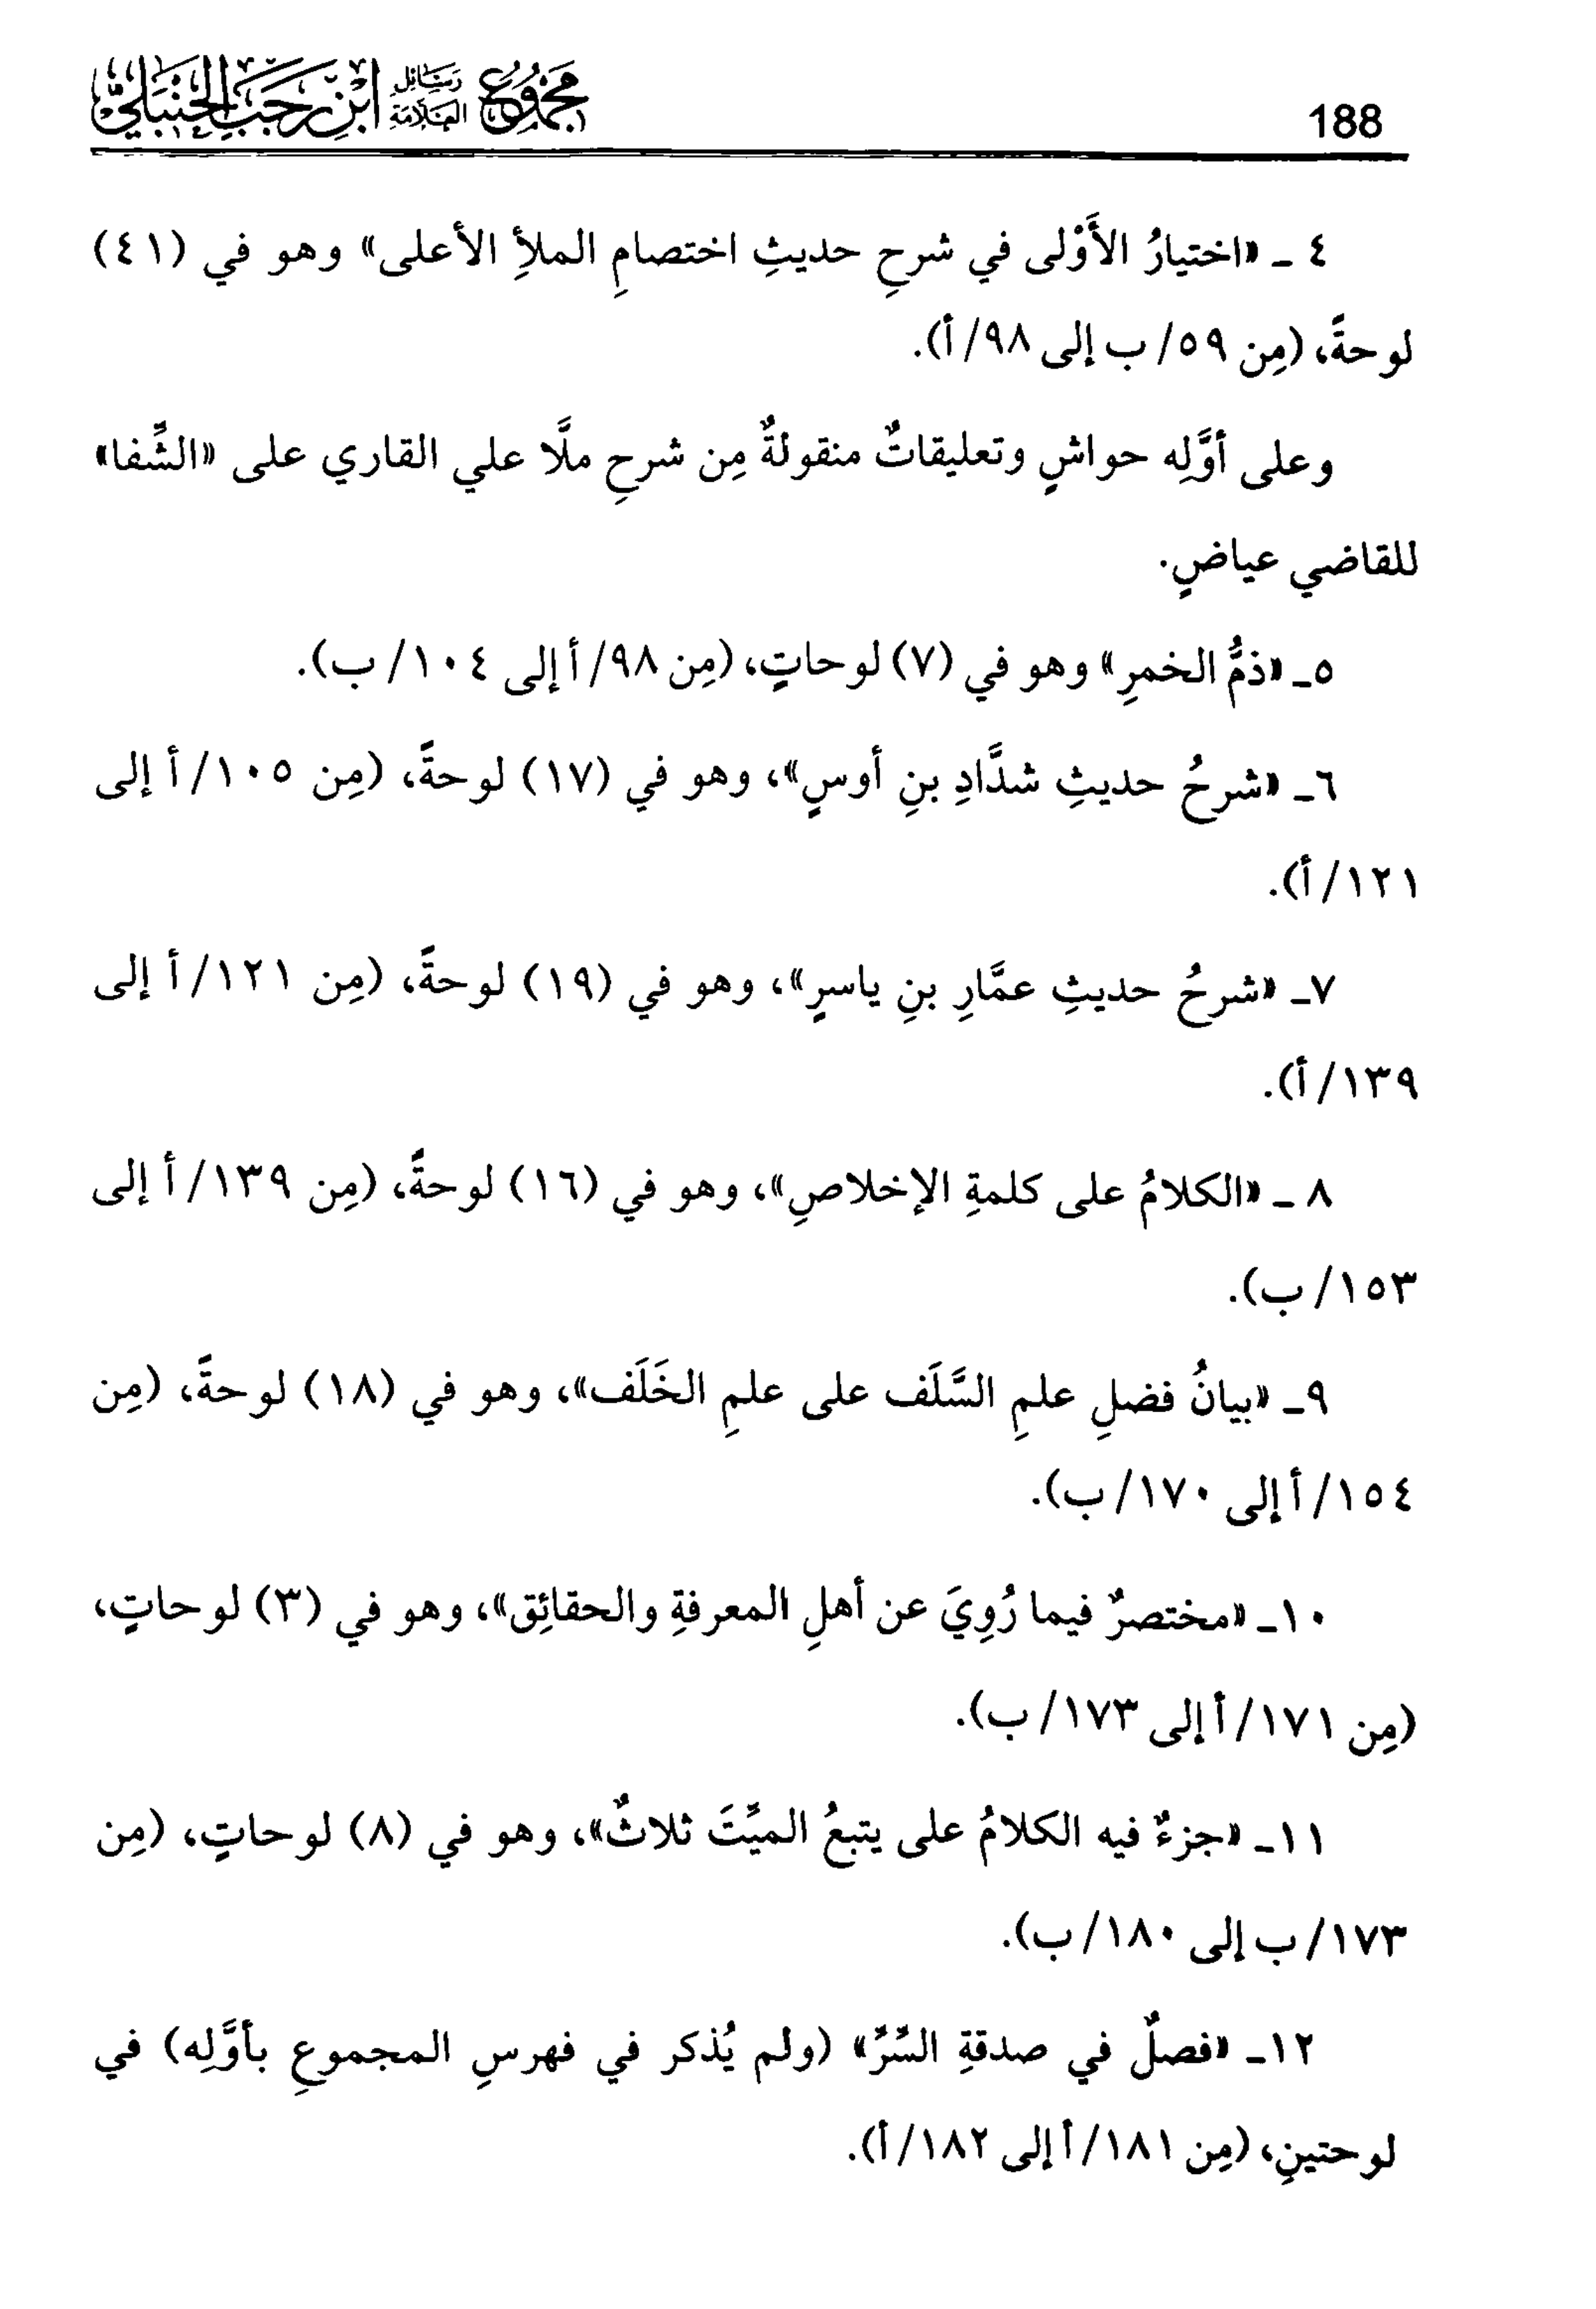 مجموع رسائل العلامة ابن رجب الحنبلي
188
٤ - «اختيارُ الأَوْلى في شرحِ حديثِ اختصامِ الملأِ الأعلى» وهو في (٤١)
لوحةً، (مِن ٥٩/ ب إلى ٩٨/ أ).
وعلى أوَّلِه حواشٍ وتعليقاتٌ منقولةٌ مِن شرحِ ملَّا علي القاري على «الشِّفا»
للقاضي عياضٍ.
٥- «ذمُّ الخمرِ» وهو في (٧) لوحاتٍ، (مِن ٩٨/ أ إلى ١٠٤/ ب).
٦- «شرحُ حديثِ شدَّادِ بنِ أوسٍ»، وهو في (١٧) لوحةً، (مِن ١٠٥/ أ إلى
١٢١/ أ).
٧- «شرحُ حديثِ عمَّارِ بنِ ياسرٍ»، وهو في (١٩) لوحةً، (مِن ١٢١/ أ إلى
١٣٩/ أ).
٨ - «الكلامُ على كلمةِ الإخلاصِ»، وهو في (١٦) لوحةً، (مِن ١٣٩/ أ إلى
١٥٣/ ب).
٩- «بيانُ فضلِ علمِ السَّلَف على علمِ الخَلَف»، وهو في (١٨) لوحةً، (مِن
١٥٤/ أ إلى ١٧٠/ ب).
١٠- «مختصرٌ فيما رُوِيَ عن أهلِ المعرفةِ والحقائِق»، وهو في (٣) لوحاتٍ،
(مِن ١٧١/ أ إلى ١٧٣/ ب).
١١- «جزءٌ فيه الكلامُ على يتبعُ الميِّتَ ثلاثٌ»، وهو في (٨) لوحاتٍ، (مِن
١٧٣/ ب إلى ١٨٠/ ب).
١٢- «فصلٌ في صدقةِ السِّرِّ» (ولم يُذكر في فهرسِ المجموعِ بأوَّلِه) في
لوحتينِ، (مِن ١٨١/ أ إلى ١٨٢/ أ).